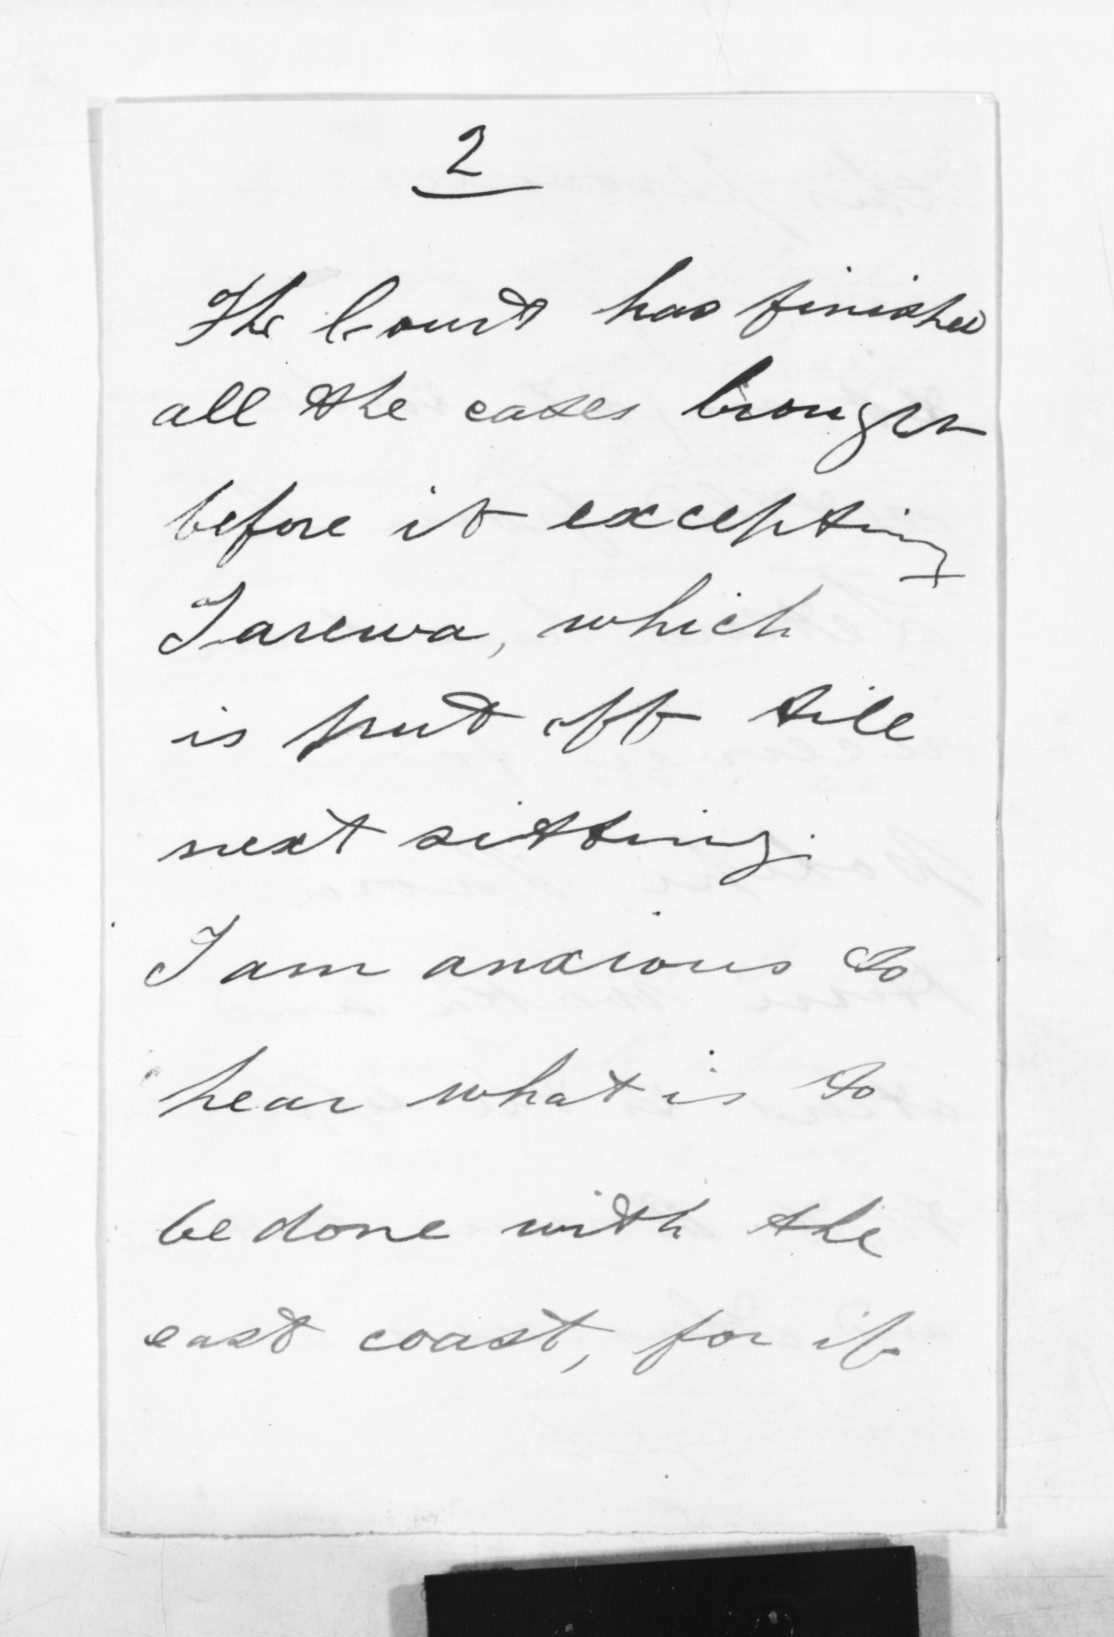 2
The Court has finished
all the cases brought
before it excepting
Tarewa, which
is put off till
next sitting.
I am anxious to
hear what is to
be done with the
east coast, for if